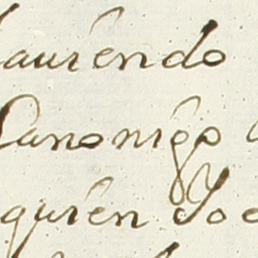 Laurendo
Canonigo
quien Yo